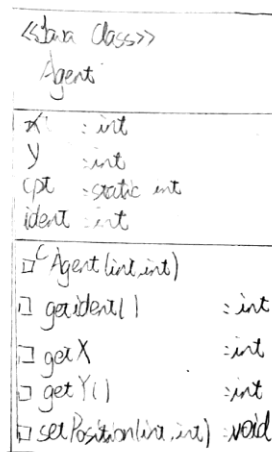 <<Java Class>>
Agent
x : int
y : int
cpt : static int
ident : int
□ᶜ Agent(int,int)
□ getident() : int
□ getX : int
□ getY() : int
□ setPosition(int,int) : void